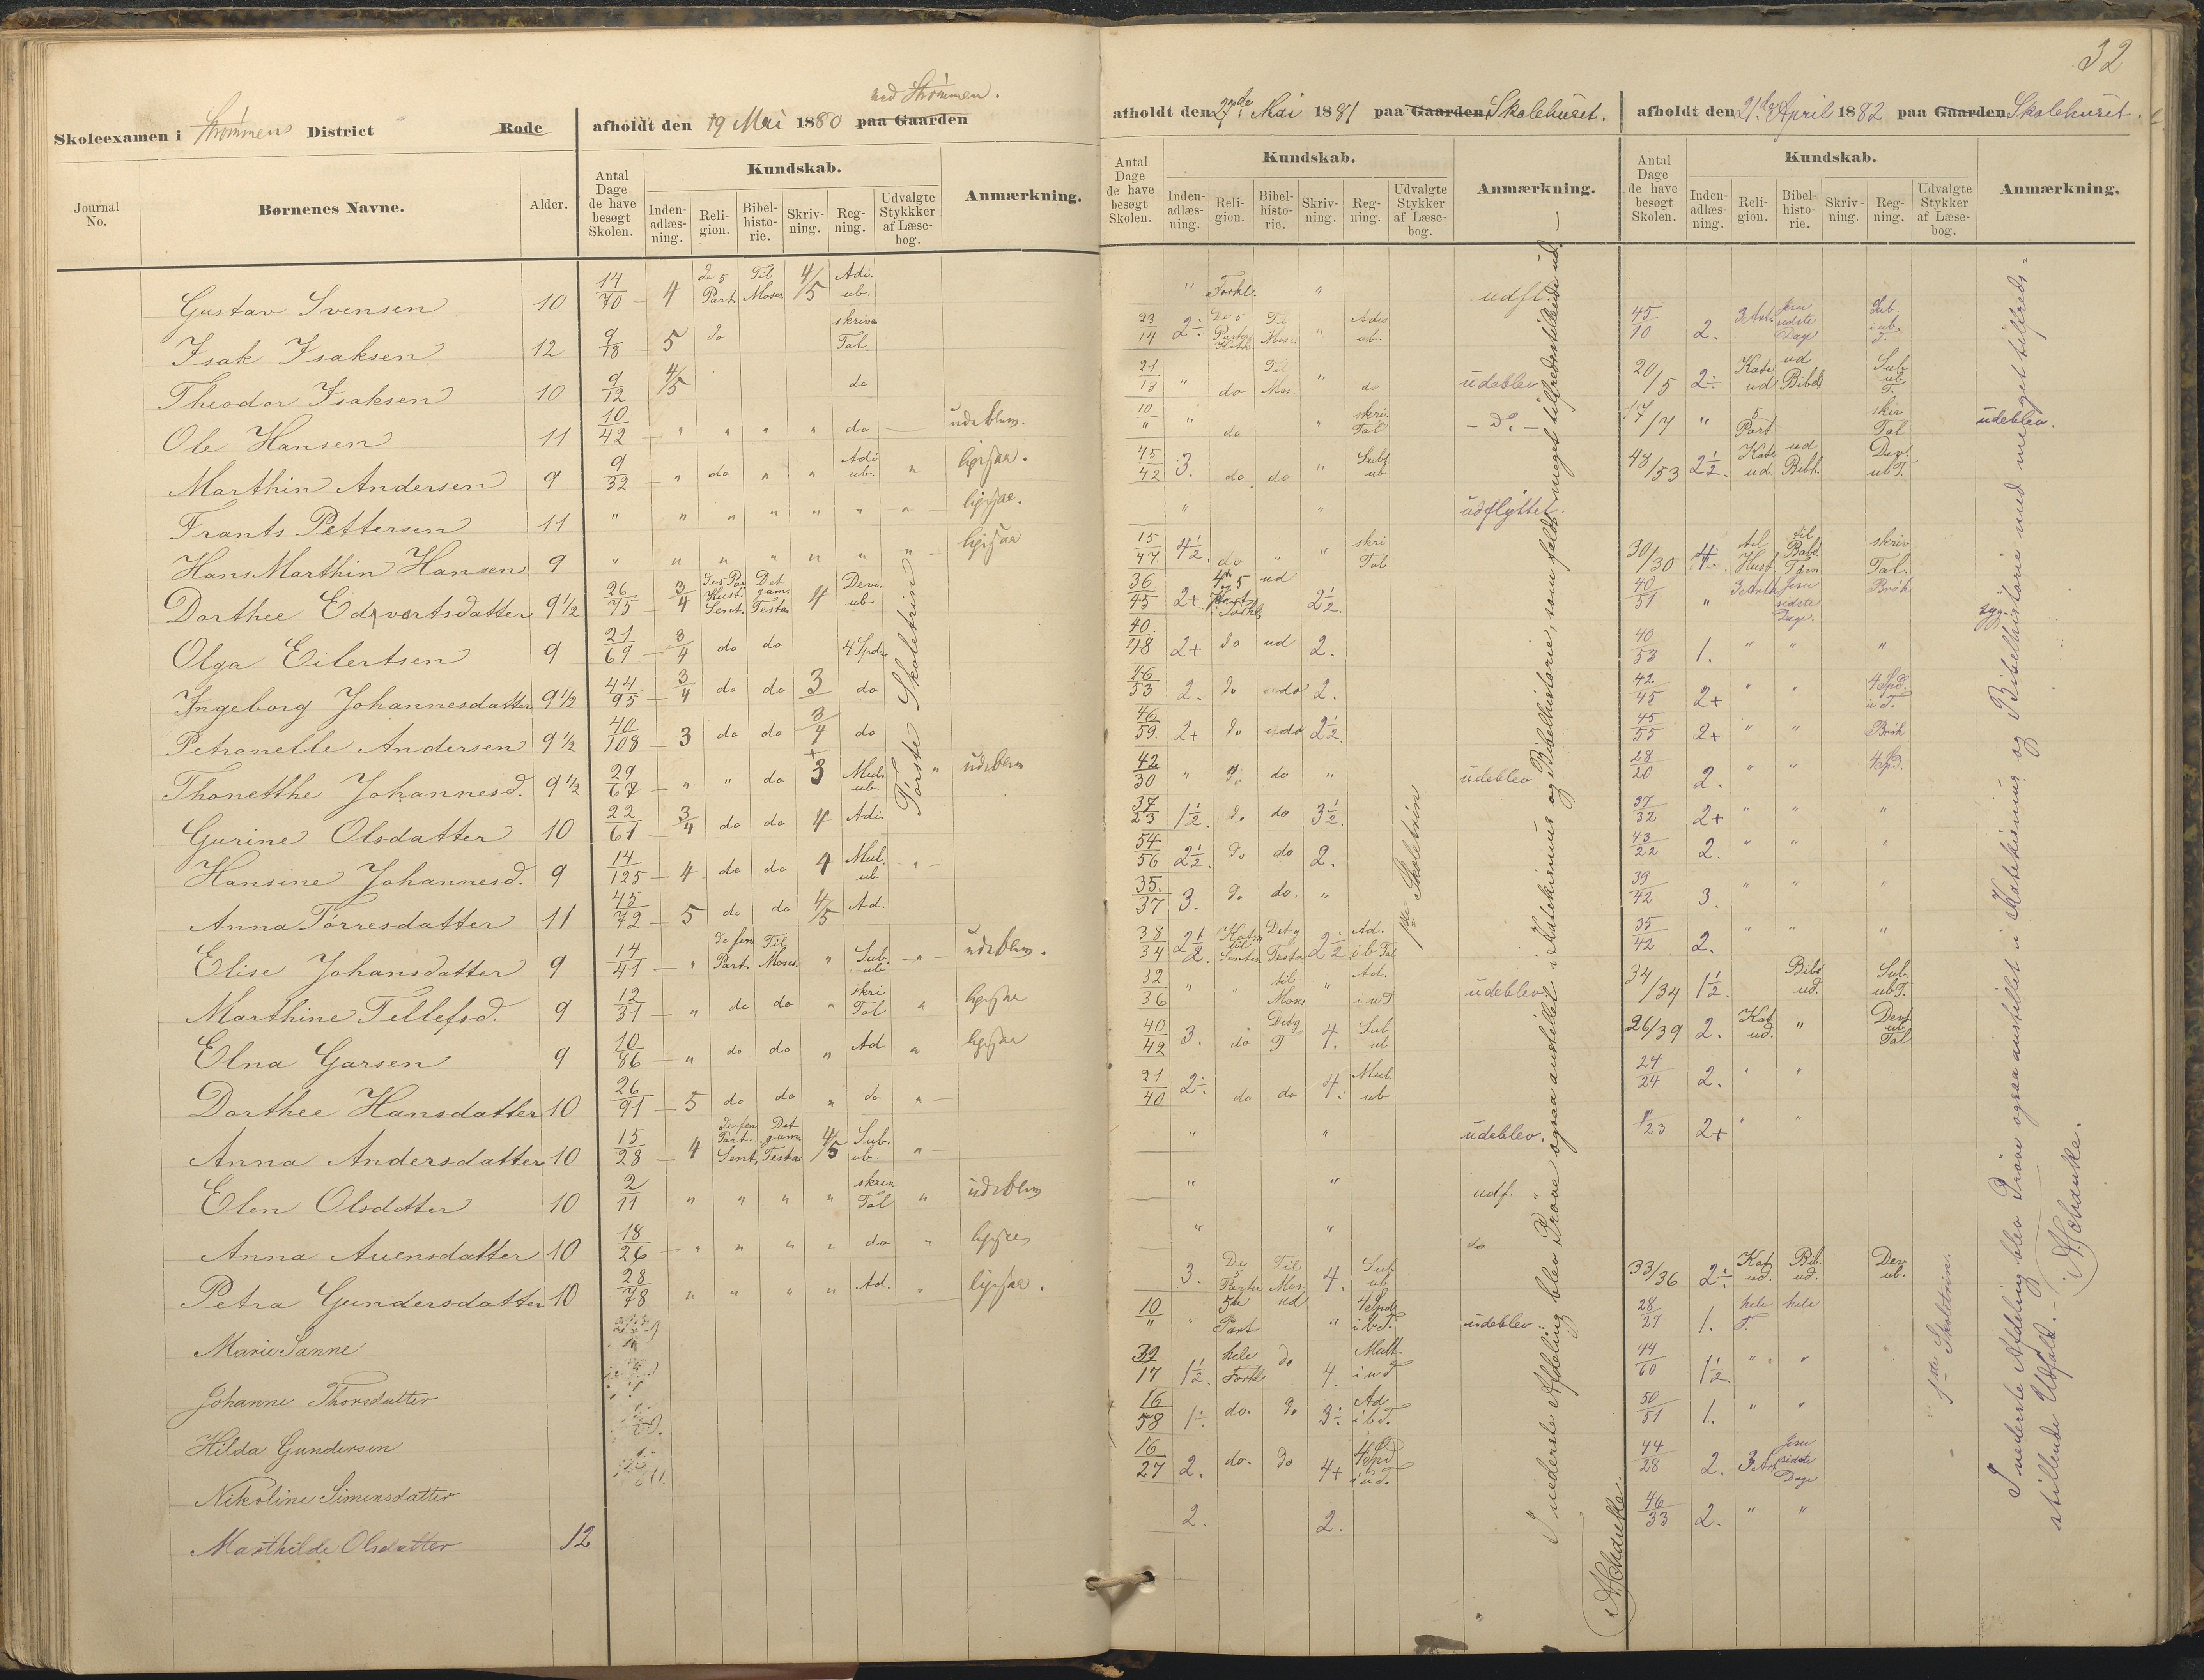 32
ved Strømmen.
Skoleexamen i Strømmens District " Rode
afholdt den 19 Mai 1880 paa Gaarden
afholdt den 27de Mai 1881 paa Gaarden Skolehuset.
afholdt den 21de April 1882 paa Gaarden Skolehuset.
Journal No. Børnenes Navne. Alder.
Antal Dage de have besøgt Skolen. Kundskab. Anmærkning.
Inden-adlæs-ning. Reli-gion. Bibel-histo-rie. Skriv-ning. Reg-ning. Udvalgte Stykkker af Læse-bog.
Antal Dage de have besøgt Skolen. Kundskab. Anmærkning.
Inden-adlæs-ning. Reli-gion. Bibel-histo-rie. Skriv-ning. Reg-ning. Udvalgte Stykker af Læse-bog.
Antal Dage de have besøgt Skolen. Kundskab. Anmærkning.
Inden-adlæs-ning. Reli-gion. Bibel-histo-rie. Skriv-ning. Reg-ning. Udvalgte Stykker af Læse-bog.
Gustav Svensen 10 14/70 4 de 5 Part. Til Moses 4/5 Adi. ub. " Forkl. " udfl.
Isak Isaksen 12 9/18 5 do skrive Tal 23/14 2÷ De 5 Parter Til Moses " Adis ub. 45/10 2. 3 Art. Jesu sidste Dage Sub. i ub.
Theodor Isaksen 10 9/12 4/5 do 21/13 " do Til Mos. " do udeblev 20/5 2÷ Kate ud ud Bibel Sub. ub T.
Ole Hansen 11 10/42 " " " " do udeblev. 10/" " do " skri. Tal - Do - 17/7 " 5 Part. skiv Tal udeblev.
Marthin Andersen 9 9/32 " do " " Adi ub. " ligesaa. 45/42 3. do do " Subt ub 48/53 2½. Kate ud. ud Bibh. Dev. ub T.
Frants Pettersen 11 " " " " " " " ligesaa. " " udflyttet.
Hans Marthin Hansen 9 " " " " " " " ligesaa 15/47 4½. do " " skri Tal 30/30 4. til Hust. til Babel Tårn skriv Tal.
Dorthee Edvartsdatter 9½ 26/75 3/4 de 5 Par Hust. Sent. Det gam. Testa 4 Devi. ub 36/45 2+ ud 2½. 40/51 " 3 Artk Jesu sidste Dage. Brøk syg.
Olga Eilertsen 9 21/69 3/4 do do 4 Spds 40/48 2+ do ud 2. 40/53 1. " " "
Ingeborg Johannesdatter 9½ 44/95 3/4 do do 3 do 46/53 2. do udo 2. 42/45 2+ " " 4 Spd. ub T.
Petronelle Andersen 9½ 40/108 3 do do 3/4 do 46/59 2+ do udo 2½. 45/55 2+ " " Brøk
Thonetthe Johannesd. 9½ 29/67 " " do 3 Mul. ub. " udeblev 42/30 " do do " udeblev 28/20 2. " " 4 Spd.
Gurine Olsdatter 10 22/61 3/4 do do 4 Adi. 37/23 1½. do do 3½. 37/32 2+ " " "
Hansine Johannesd. 9 14/125 4 do do 4 Mul. ub " 54/56 2½. do do 2. 43/22 2. " " "
Anna Tørresdatter 11 45/72 5 do do 4/5 Ad. 35/37 3. do do. " 39/42 3. " " "
Elise Johansdatter 9 14/41 " de fem Part. Til Moses. " Sub. ub " udeblev. 38/34 2½ Det g Testa 2½ Ad. i b Tal 35/42 2. " " "
Marthine Tellefsd. 9 12/31 " do do " skri Tal " ligesaa 32/36 " " til Moses " Ad. i u T udeblev 34/34 1½. Bibl ud. Sub. ub T.
Elna Garsen 9 10/86 " do do " Ad " ligesaa 40/42 3. do Det g T 4. Sub ub 26/39 2. Kat ud. " Devi ub Tal
Dorthee Hansdatter 10 26/91 5 do do " do " 21/40 2÷ do do 4. Mul. ub 24/24 2. " "
Anna Andersdatter 10 15/28 4 de fem Part. Sent. Det gam. Testa 4/5 Sub. ub. " " " udeblev. 2+ " "
Elen Olsdatter 10 2/11 " " " " skriv Tal " udeblev " " udf.
Anna Auensdatter 10 18/26 " " " " do " ligesaa " " do
Petra Gundersdatter 10 28/78 " " " " Ad. " ligesaa. 3. De 5 Parter Til Mos. 4. Sub ub 33/36 2÷ Kat ud. Bib. ud. Dev ub.
Marie Sanne 10/" " 5te Part ud " 4 Spd i b T. udeblev 28/27 1. hele F. hele
Johanne Thorsdatter 32/17 1½. hele Forkl do 4. Mult i u T 44/60 1½. " "
Hilda Gundersen 16/58 1÷ do. do 3÷ Ad i b T. 50/51 1. " "
Nikoline Simensdatter 16/27 2. do. do 4+ 4 Spd i u T. 44/28 2. 3 Art Jesu sidste Dage
Masthilde Olsdatter 12 2. 2. 46/33 2. " "
Første Skoletrin
1ste Skoletrin
I nederste Afdeling blev Prøve ogsaa anstillet i Katekismus og Bibelhistorie, som faldt meget tilfredsstillende ud. —
1ste Skoletrin.
I nederste Afdeling blev Prøve ogsaa anstillet i Katekismus og Bibelhistorie med meget tilfreds-
stillende Udfald. —